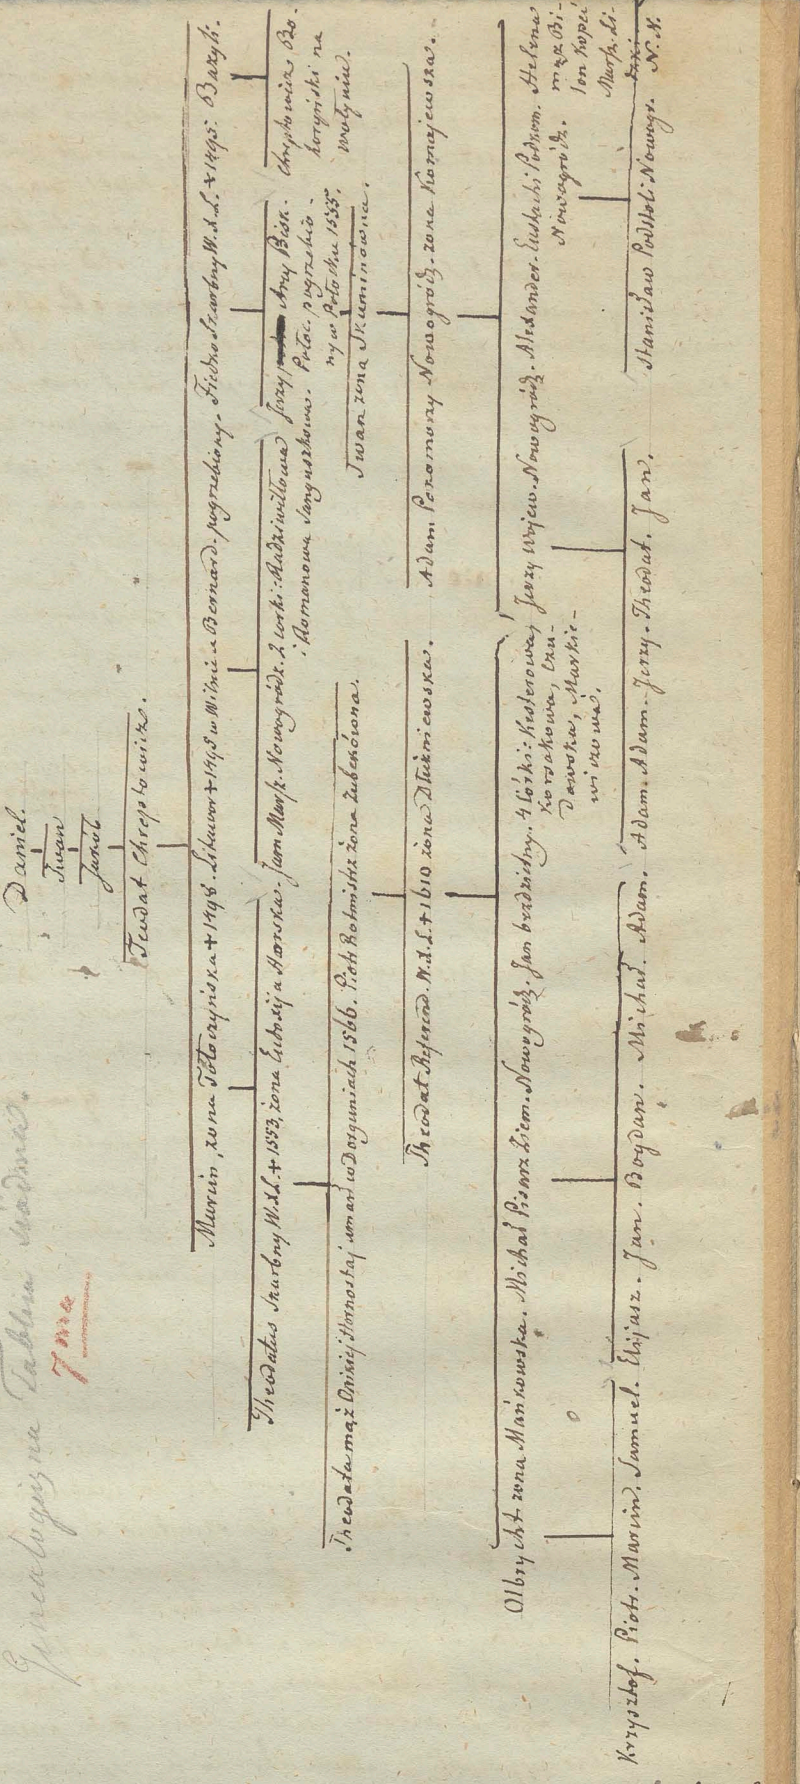 Genealogiczna Tablica
7ma
Daniel.
Iwan
Jakób
Teodat Chreptowicz.
Marcin, żona Tołoczyńska + 1498. Litawor + 1493 w Wilnie u Bernard. pogrzebiony. Fiedko Skarbny W.X.L. + 1495. Bazyli.
Theodatus Skarbny W.X.L. + 1553, żona Eudoxija Horska. Jan Marsz. Nowogródz. 2 corki: Radziwiłłowa
i Romanowa Sanguszkowa.
Jerzy Arcy Bisk.
Połoc. pogrzebio-
ny w Połocku 1555.
Chreptowicz Bo-
horyński na
Wołyniu.
Iwan żona Skuminowna.
Theodata mąż Onikiej Hornostaj umarł w Dorguniach 1566. Piotr Rotmistrz żona Zubekówna.
Theodat Referend. W.X.L. + 1610 żona Dłużniewska.
Adam Pokomorzy Nowogródz. żona Komajewska.
Olbrycht żona Mańkowska. Michał Pisarz Ziem. Nowogródz. Jan bezdzietny. 4 Córki: Kroszerowa,
Korsakowa,
Markie-
wiczowa.
Jerzy Wojew. Nowogródz. Alexander. Eustachi Podkom.
Nowogródz.
Helena
mąż
Kopeć
Marsz. Li-
Krzysztof. Piotr. Marcin. Samuel. Elijasz. Jan. Bogdan. Michał. Adam. Adam. Adam. Jerzy. Theodat. Jan.
Stanisław Podstoli Nowogr. N. N.